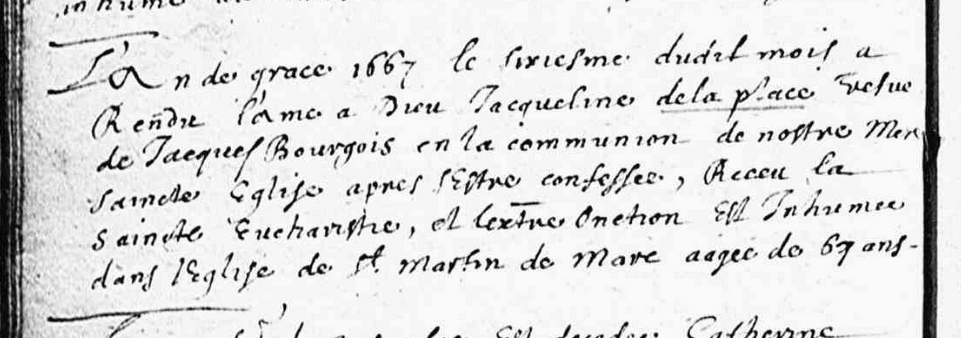 inhumé
L'An de grace 1667 le sixiesme dudit mois a
Rendu l'ame a Dieu Jacqueline dela place Vefue
de Jacques Bourgois en la communion de nostre Mere
saincte Eglise apres s'Estre confessee, Receu la
saincte Eucharistie, et lextre Onction Est Inhumee
dans l'Eglise de st Martin de Marc aagee de 69 ans-
Est decedee Catherine